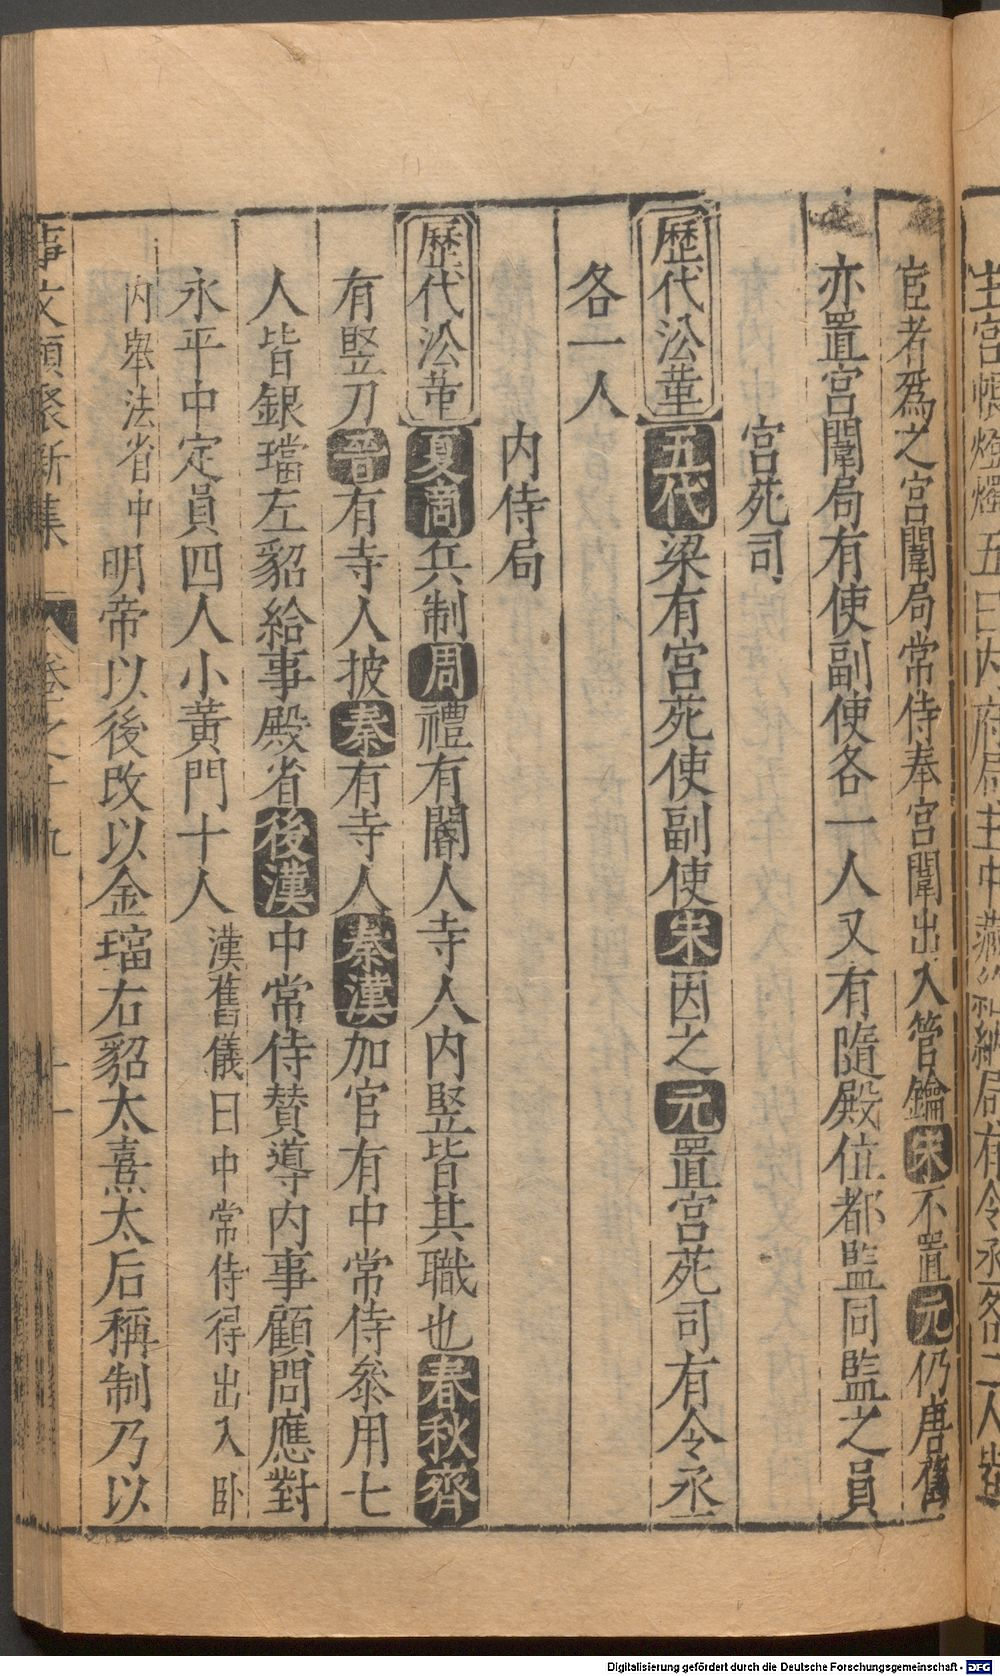 主宮帳燈燭五曰内府局主中藏給納局有令丞各二人皆
宦者爲之宮闈局常侍奉宮闈出入管鑰宋不置元仍唐舊
亦置宮闈局有使副使各一人又有隨殿位都監同監之員
宮苑司
歷代沿革五代梁有宮苑使副使宋因之元置宮苑司有令丞
各一人
内侍局
歷代沿革夏商兵制周禮有閽人寺人内竪皆其職也春秋齊
有竪刀晉有寺人披秦有寺人秦漢加官有中常侍叅用七
人皆銀璫左貂給事殿省後漢中常侍賛導内事顧問應對
永平中定員四人小黄門十人漢舊儀曰中常侍得出入卧
内舉法省中明帝以後改以金璫右貂太熹太后稱制乃以
事文類聚新集 卷之十九 十一
Digitalisierung gefördert durch die Deutsche Forschungsgemeinschaft - DFG